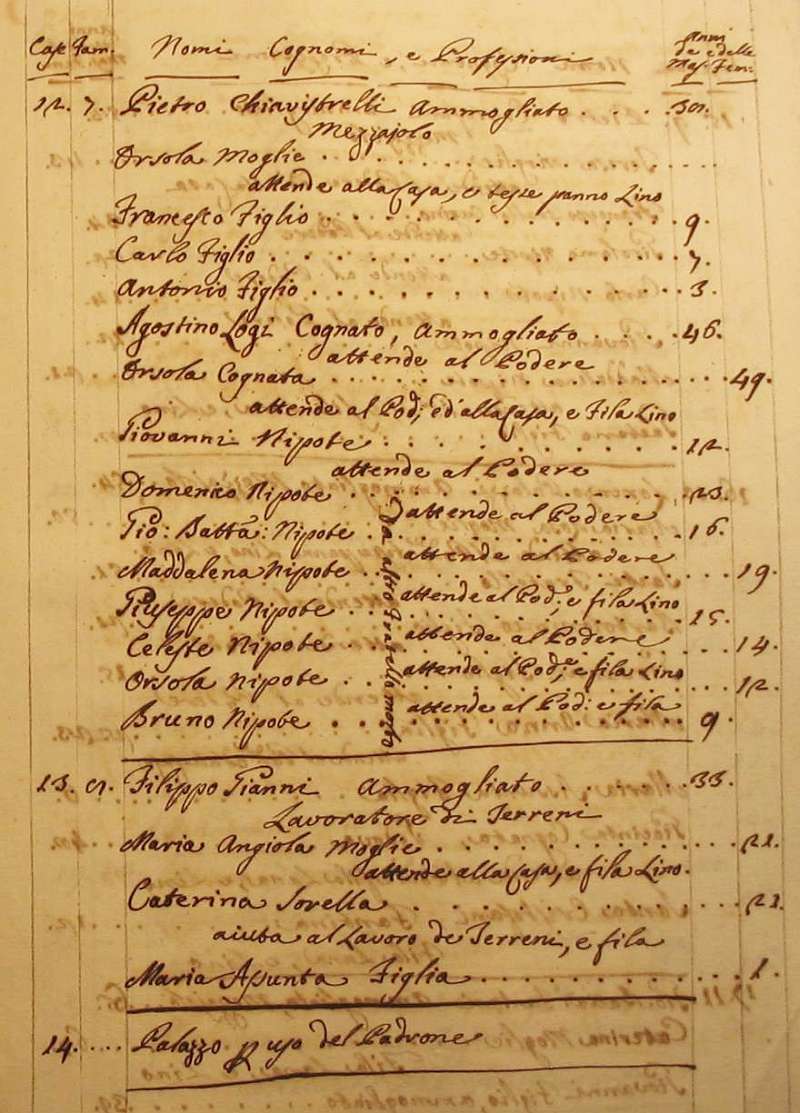 Case Fam. Nomi Cognomi, e Professioni Anni de e delle Mas. Fem:
12. 7. Pietro Chiavistrelli Ammogliato . . . . 30.
Mezzajolo
Orsola Moglie
attende alla Casa, e tesse panno Lino
Francesco Figlio . . . . 9.
Carlo Figlio . . . . 7.
Antonio Figlio . . . . 3.
Agostino Logi Cognato, Ammogliato . . . . 46.
attende al Podere
Orsola Cognata . . . . 49.
attende al Pod:, ed'alla Casa, e Fila Lino
Giovanni Nipote . . . . 12.
attende al Podere
Domenico Nipote . . . . 23.
attende al Podere
Gio: Batta: Nipote . . . . 16.
attende al Podere
Maddalena Nipote . . . . 19.
attende al Pod:, e fila Lino
Giuseppe Nipote . . . . 15.
attende al Podere
Celeste Nipote . . . . 14.
attende al Pod:, e fila Lino
Orsola Nipote . . . . 12.
attende al Pod: e fila
Bruno Nipote . . . . 9.
Da altro Fratello morto
13. Filippo Gianni Ammogliato . . . . 33.
Lavoratore di Terreni
Maria Angiola Moglie
attende alla Casa, e fila Lino.
Caterina Sorella
aiuta al Lavoro de Terreni, e fila
Maria Assunta Figlia . . . . 1.
14. . . . . Palazzo p uso del Padrone